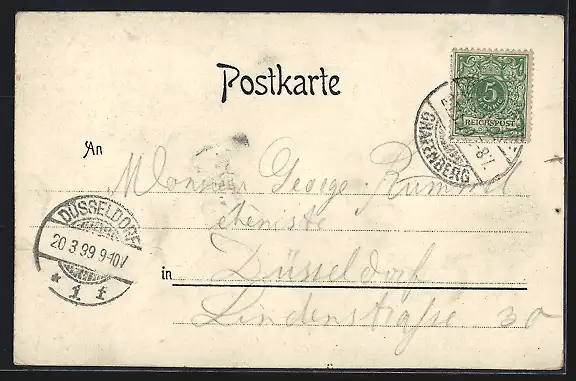 Postkarte
5
REICHSPOST
GRAFENBERG
8-9
An Monsieur George Rummel
DÜSSELDORF
20 3 99 9-10V
* 1 f
in Düsseldorf
Lindenstraße 30